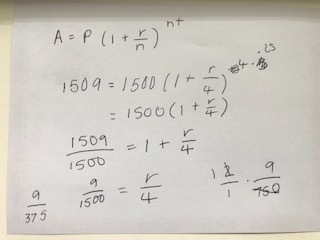 A = P (1 + r/n)^nt
1509 = 1500 (1 + r/4)^4 · .25
= 1500 (1 + r/4)
1509/1500 = 1 + r/4
9/375 9/1500 = r/4 12/1 · 9/750